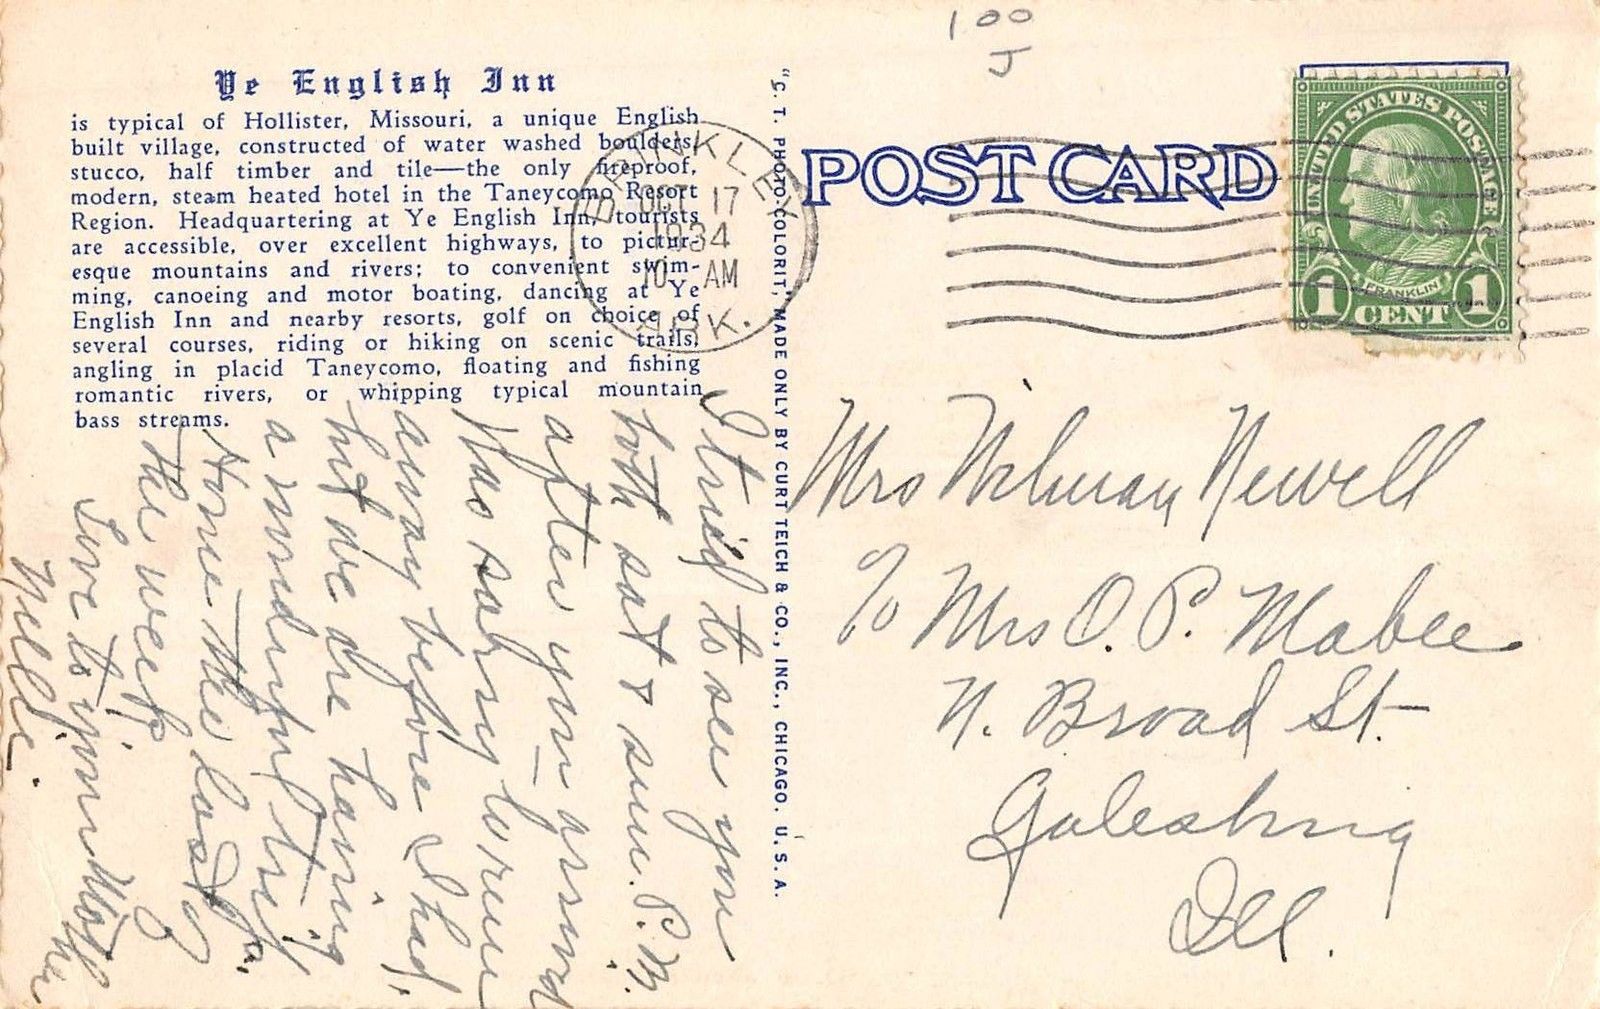 100
J
Ye English Inn
is typical of Hollister, Missouri, a unique English
built village, constructed of water washed boulders,
stucco, half timber and tile—the only fireproof,
modern, steam heated hotel in the Taneycomo Resort
Region. Headquartering at Ye English Inn, tourists
are accessible, over excellent highways, to pictur-
esque mountains and rivers; to convenient swim-
ming, canoeing and motor boating, dancing at Ye
English Inn and nearby resorts, golf on choice of
several courses, riding or hiking on scenic trails,
angling in placid Taneycomo, floating and fishing
romantic rivers, or whipping typical mountain
bass streams.
I tried to see you
both sat & sun. P.M.
after you around
Was sorry to run
away before I had,
but we are having
a wonderful trip.
Home the last of
the week
Love to your Mother
Nellie.
"C. T. PHOTO-COLORIT," MADE ONLY BY CURT TEICH & CO., INC., CHICAGO. U. S. A.
POST CARD
BRINKLEY
OCT 17
1934
10 AM
ARK.
UNITED STATES POSTAGE
FRANKLIN
1 CENT 1
Mrs Newell
% Mrs O. P. Mabee
N. Broad St.
Galesburg
Ill.